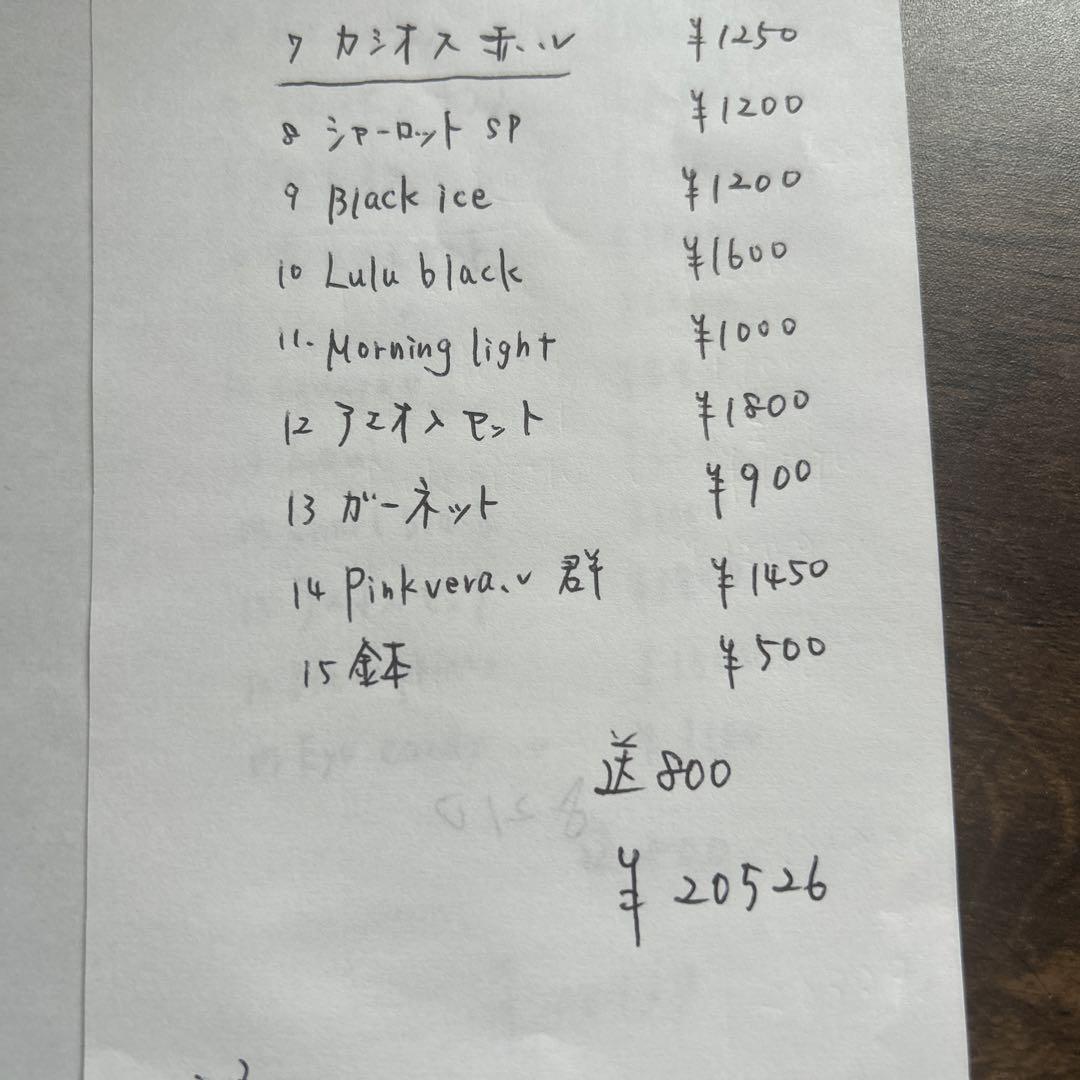 7 カシオス ¥1250
8 シャーロット SP ¥1200
9 Black ice ¥1200
10 Lulu black ¥1600
11. Morning light ¥1000
12 アエオノセット ¥1800
13 ガーネット ¥900
14 Pinkvera、v 群 ¥1450
15 ¥500
送 800
¥20526